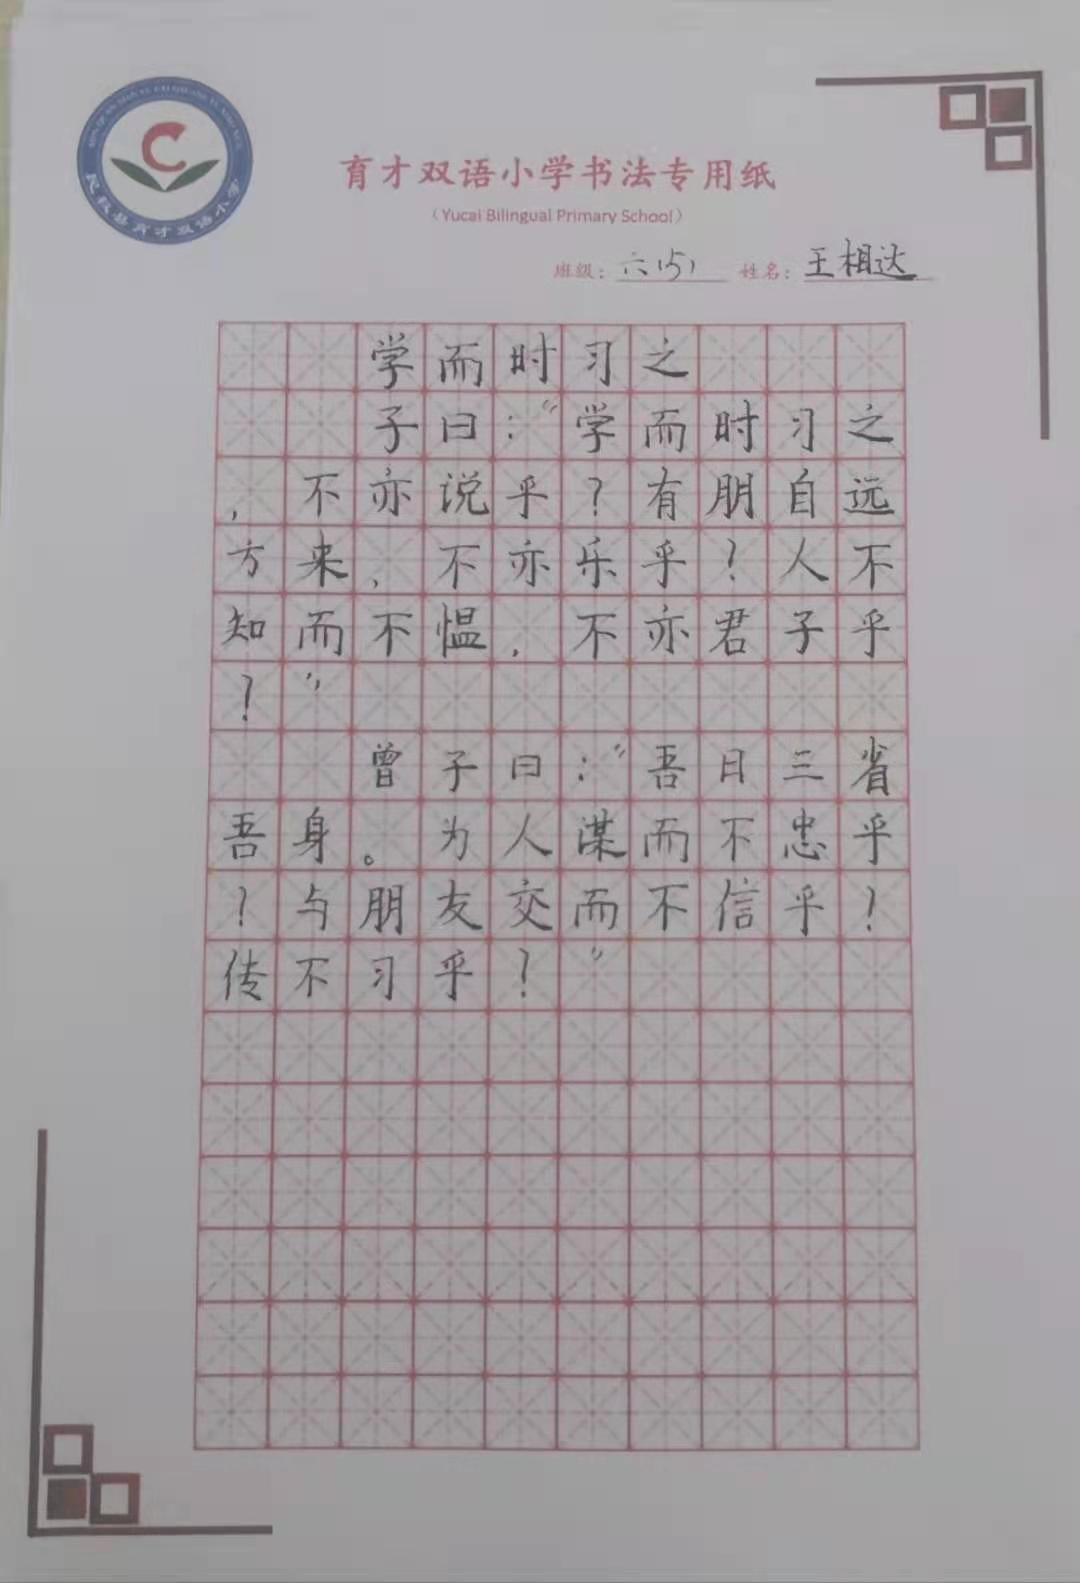 民权县育才双语小学
育才双语小学书法专用纸
（Yucai Bilingual Primary School）
班级：六(5) 姓名：王相达
学而时习之
子曰："学而时习之
，不亦说乎？有朋自远
方来，不亦乐乎？人不
知而不愠，不亦君子乎
？"
曾子曰："吾日三省
吾身。为人谋而不忠乎
？与朋友交而不信乎？
传不习乎？"